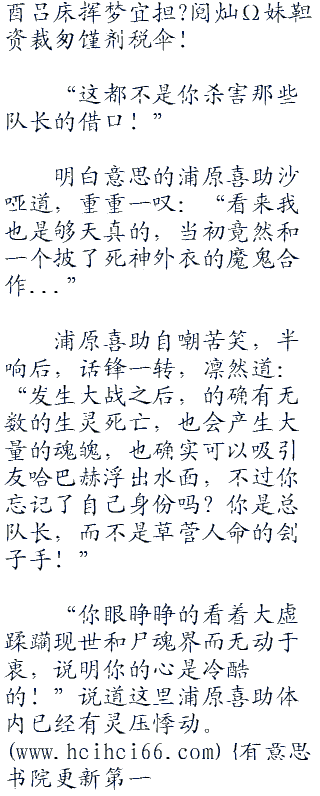 酉吕床挥梦宜担?阏灿Ω妹靼
资裁匆馑剂税伞!
“这都不是你杀害那些
队长的借口！”
明白意思的浦原喜助沙
哑道，重重一叹：“看来我
也是够天真的，当初竟然和
一个披了死神外衣的魔鬼合
作...”
浦原喜助自嘲苦笑，半
响后，话锋一转，凛然道：
“发生大战之后，的确有无
数的生灵死亡，也会产生大
量的魂魄，也确实可以吸引
友哈巴赫浮出水面，不过你
忘记了自己身份吗？你是总
队长，而不是草菅人命的刽
子手！”
“你眼睁睁的看着大虚
蹂躏现世和尸魂界而无动于
衷，说明你的心是冷酷
的！”说道这里浦原喜助体
内已经有灵压悸动。
(www.hcihci66.com){有意思
书院更新第一